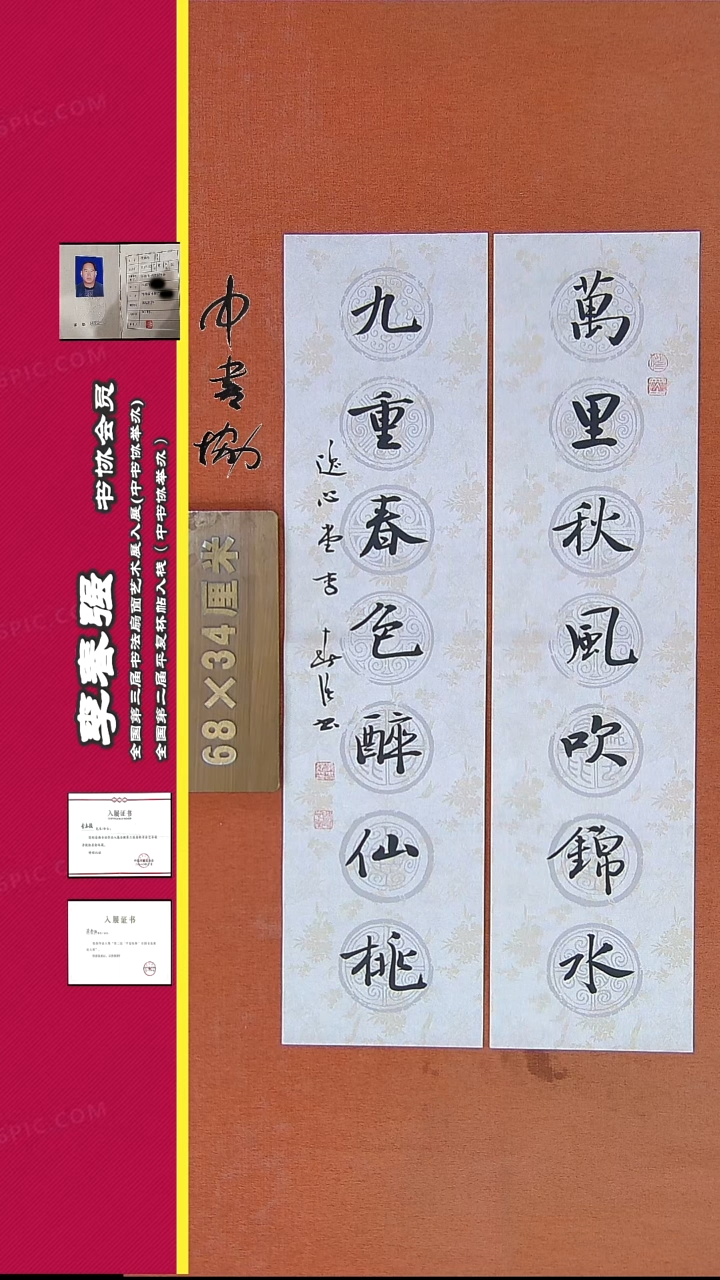 萬里秋風吹錦水
九重春色醉仙桃
逸心堂 李春强书
中書協
68×34厘米
李春强 书协会员
全国第三届书法扇面艺术展入展(中书协举办)
全国第二届平复杯帖入展(中书协举办)
入展证书
入展证书